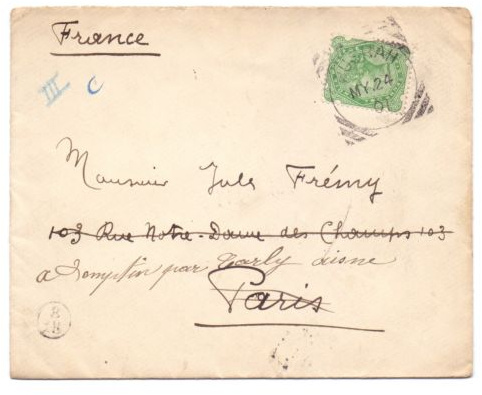 France
III C
MY 24
01
Monsieur Jules Frémy
103 Rue Notre-Dame des Champs 103
par Aisne
Paris